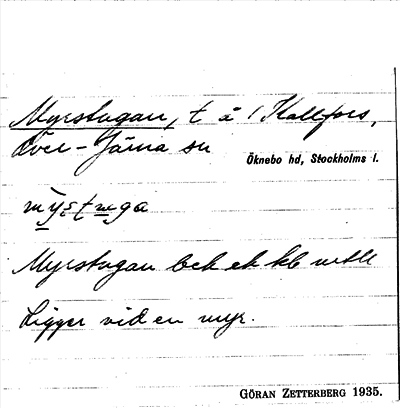 Myrstugan, t å 1 Hallfors,
Över-Järna sn
Öknebo hd, Stockholms l.
Myrstugan bek ek kb
Ligger vid en myr.
GÖRAN ZETTERBERG 1935.